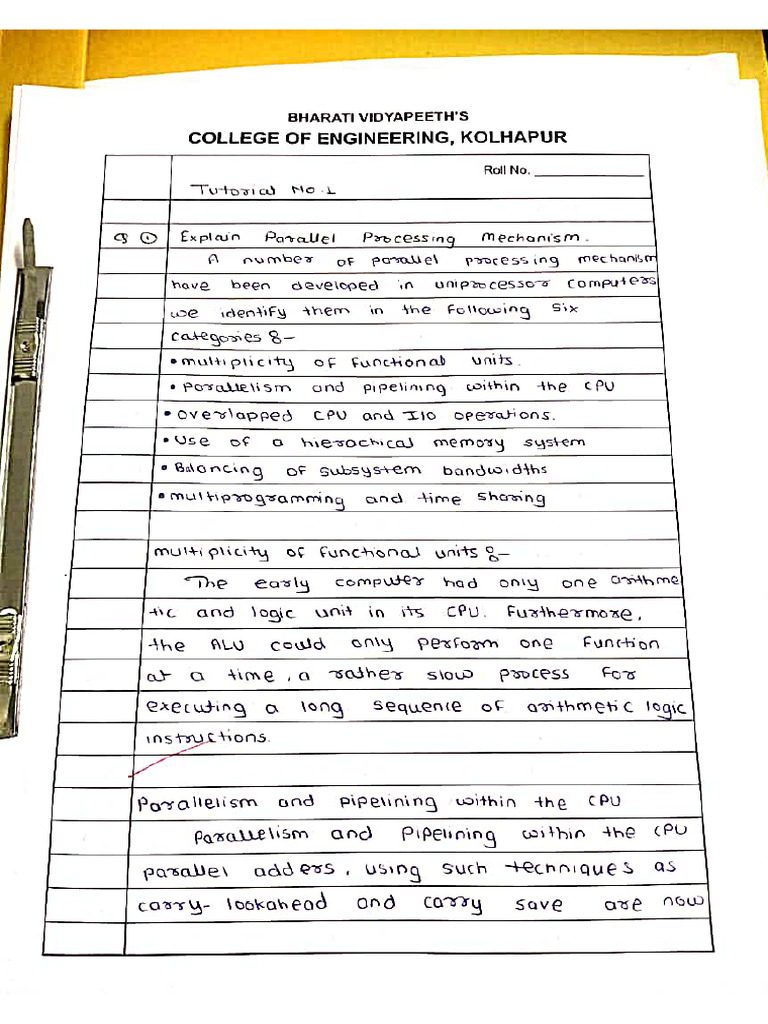 BHARATI VIDYAPEETH'S
COLLEGE OF ENGINEERING, KOLHAPUR
Roll No. ______________
Tutorial No.1
Q ① Explain Parallel Processing Mechanism.
A number of parallel processing mechanism
have been developed in uniprocessor computers
we identify them in the following six
categories :-
• multiplicity of functional units.
• parallelism and pipelining within the CPU
• overlapped CPU and I/O operations.
• Use of a hierachical memory system
• Balancing of subsystem bandwidths
• multiprogramming and time sharing
multiplicity of functional units :-
The early computer had only one arithme
tic and logic unit in its CPU. Furthermore,
the ALU could only perform one function
at a time, a rather slow process for
executing a long sequence of arithmetic logic
instructions.
Parallelism and pipelining within the CPU
Parallelism and Pipelining within the CPU
parallel adders, using such techniques as
carry-lookahead and carry save are now